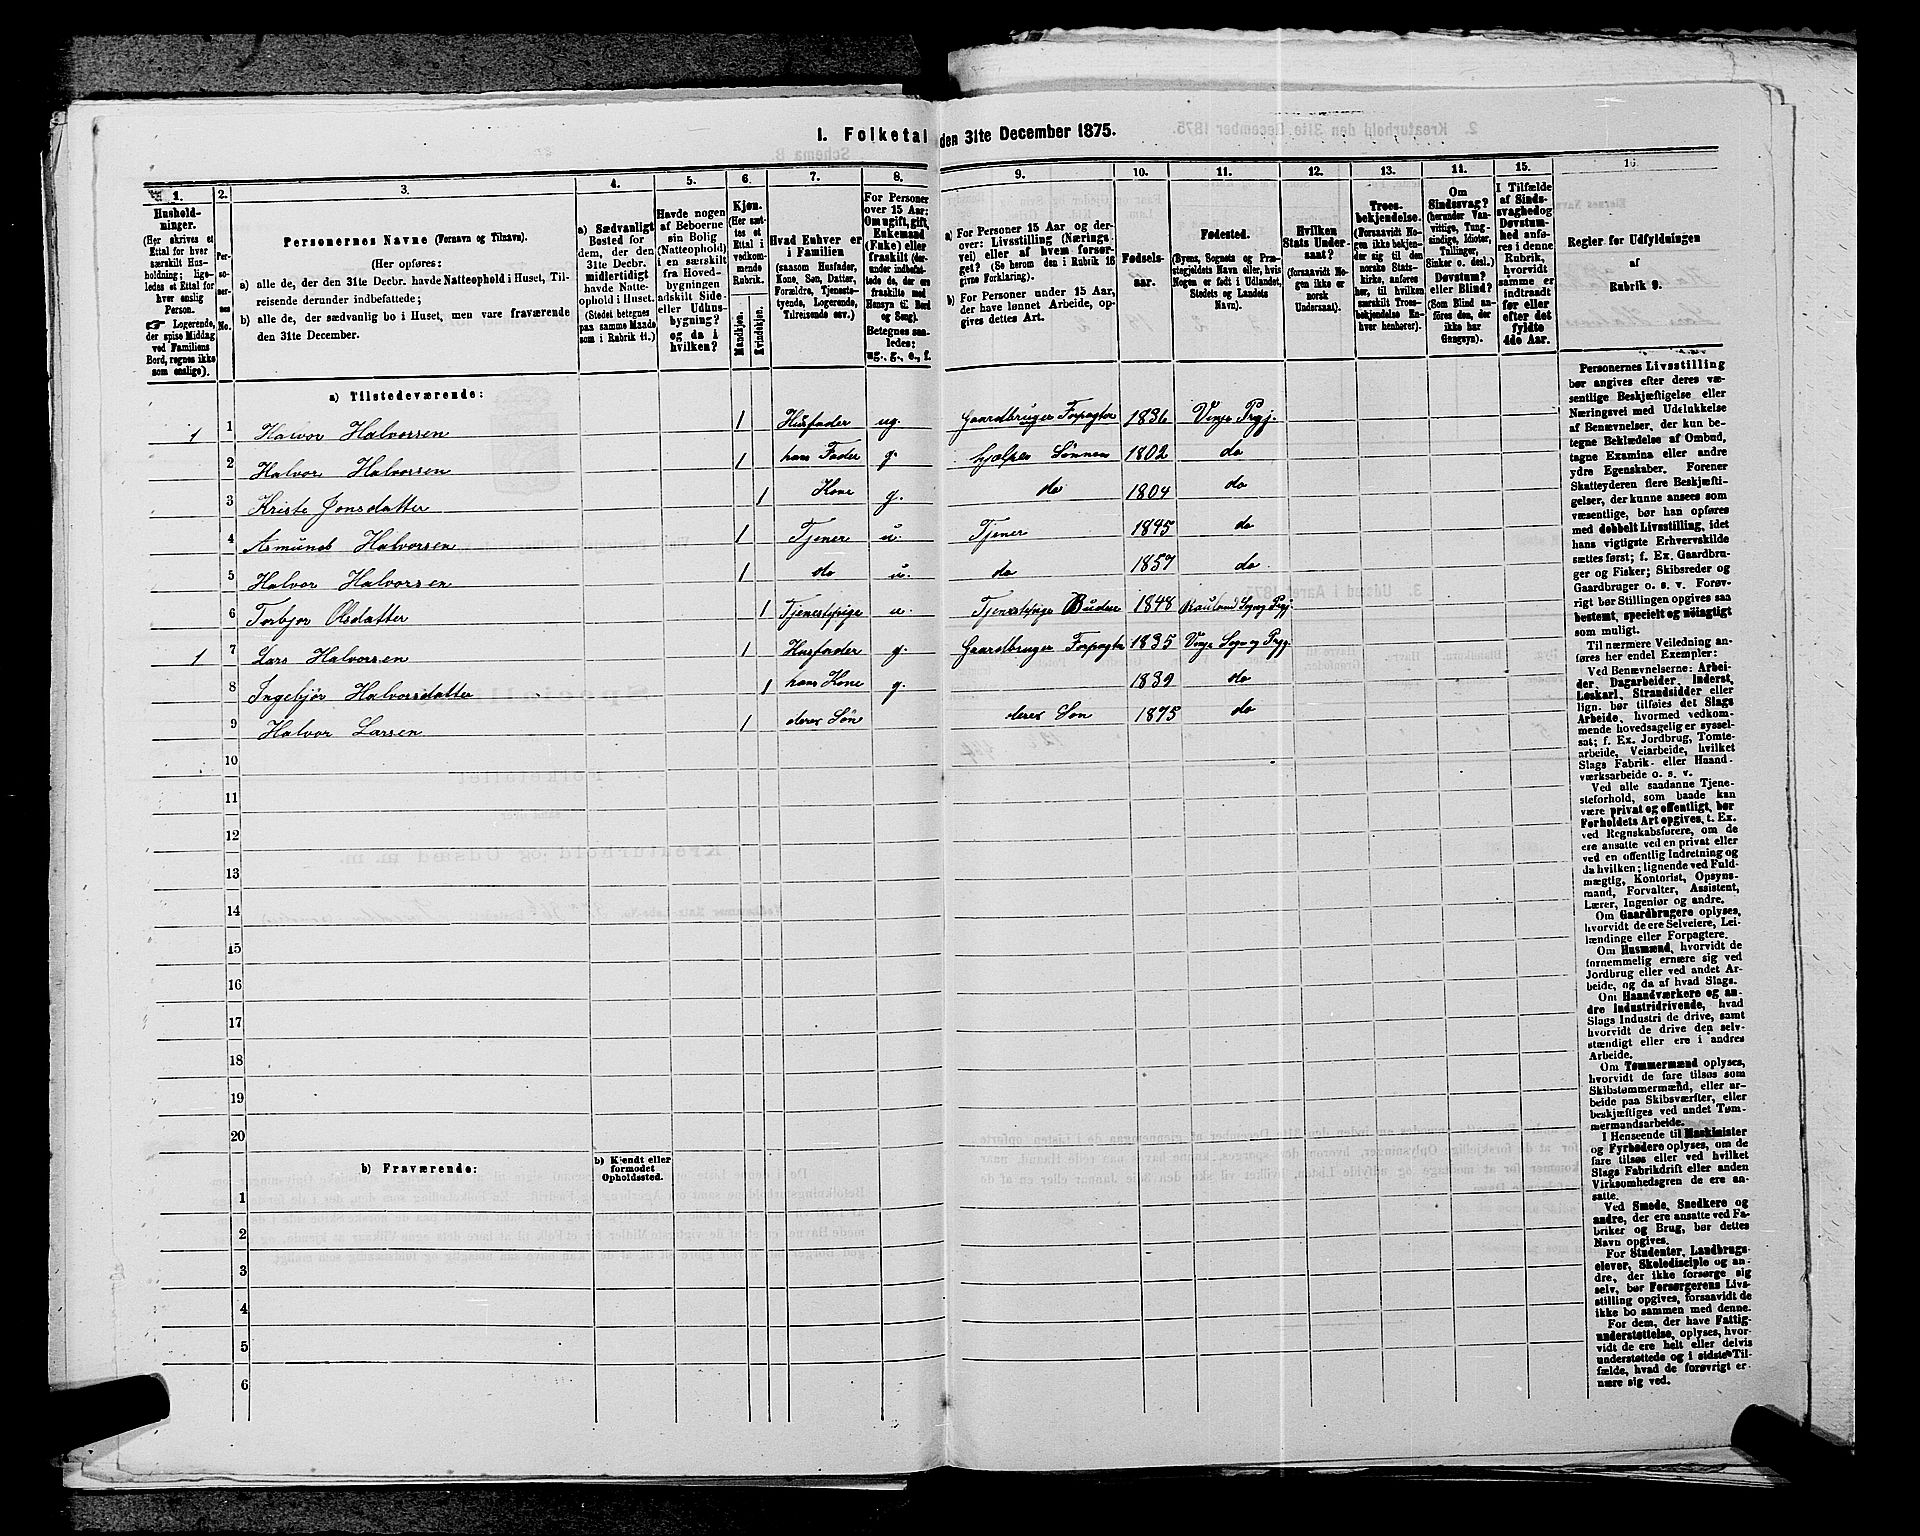 1. Folketal den 31te December 1875.
1.
Hushold-
ninger.
(Her skrives et
Ettal for hver
særskilt Hus-
holdning; lige-
ledes et Ettal for
hver enslig
Person.
☞ Logerende,
der spise Middag
ved Familiens
Bord, regnes ikke
som enslige).
2.
Per-
so-
ner-
nes
No.
3.
Personernes Navne (Fornavn og Tilnavn).
(Her opføres:
a) alle de, der den 31te Decbr. havde Natteophold i Huset, Til-
reisende derunder indbefattede;
b) alle de, der sædvanlig bo i Huset, men vare fraværende
den 31te December.
4.
a) Sædvanligt
Bosted for
dem, der den
31te Decbr.
midlertidigt
havde Natte-
ophold i Huset.
(Stedet betegnes
paa samme Maade
som i Rubrik 11.)
5.
Havde nogen
af Beboerne
sin Bolig
(Natteophold)
i en særskilt
fra Hoved-
bygningen
adskilt Side-
eller Udhus-
bygning?
og da i
hvilken?
6.
Kjøn.
(Her sæt-
tes et
Ettal i
vedkom-
mende
Rubrik.
Mandkjøn.
Kvindekjøn.
7.
Hvad Enhver er
i Familien
(saasom Husfader,
Kone, Søn, Datter,
Forældre, Tjeneste-
tyende, Logerende,
Tilreisende osv.)
8.
For Personer
over 15 Aar:
Om ugift, gift,
Enkemand
(Enke) eller
fraskilt (der-
under indbefat-
tede de, der ere
fraskilte med
Hensyn til Bord
og Seng).
Betegnes saa-
ledes:
ug., g., e., f.
9.
a) For Personer 15 Aar og der-
over: Livsstilling (Nærings-
vei) eller af hvem forsør-
get? (Se herom den i Rubrik 16
givne Forklaring).
b) For Personer under 15 Aar,
der have lønnet Arbeide, op-
gives dettes Art.
10.
Fødsels-
aar.
11.
Fødested.
(Byens, Sognets og Præ-
stegjeldets Navn eller, hvis
Nogen er født i Udlandet,
Stedets og Landets
Navn).
12.
Hvilken
Stats Under-
saat?
(forsaavidt No-
gen ikke er
norsk
Undersaat).
13.
Troes-
bekjendelse.
(Forsaavidt No-
gen ikke bekjen-
der sig til den
norske Stats-
kirke, anføres
her, til hvilken
særskilt Troes-
bekjendelse En-
hver henhører).
14.
Om
Sindssvag?
(herunder Van-
vittige, Tung-
sindige, Idioter,
Tullinger,
Sinker o. desl.)
Døvstum?
eller Blind?
(Som Blind an-
føres den, der
ikke har
Gangsyn).
15.
I Tilfælde
af Sinds-
svaghed og
Døvstum-
hed anfø-
res i denne
Rubrik,
hvorvidt
samme er
indtraadt
før eller
efter det
fyldte
4de Aar.
16.
Regler for Udfyldningen
af
Rubrik 9.
a) Tilstedeværende:
1 1 Halvor Halvorsen 1 Husfader ug. Gaardbruger Forpagter 1836 Vinje Prgj.
2 Halvor Halvorsen 1 hans Fader g. hjælper Sønnen 1802 do
3 Kriste Jonsdatter 1 Kone g. do 1804 do
4 Asmund Halvorsen 1 Tjener u. Tjener 1845 do
5 Halvor Halvorsen 1 do u. do 1857 do
6 Torbjor Olsdatter 1 Tjenestpige u. Tjenestpige Budeie 1848 Rauland Sogn Prgj.
1 7 Lars Halvorsen 1 Husfader g. Gaardbruger Forpagter 1835 Vinje Sogn og Prgj
8 Ingebjør Halvorsdatter 1 hans Kone g. 1839 do
9 Halvor Larsen 1 deres Søn deres Søn 1875 do
10
11
12
13
14
15
16
17
18
19
20
b) Fraværende:
b) Kjendt eller
formodet
Opholdssted.
1
2
3
4
5
6
Personernes Livsstilling
bør angives efter deres væ-
sentlige Beskjæftigelse eller
Næringsvei med Udelukkelse
af Benævnelser, der kun be-
tegne Beklædelse af Ombud,
tagne Examina eller andre
ydre Egenskaber. Forener
Skatteyderen flere Beskjæfti-
gelser, der kunne ansees som
væsentlige, bør han opføres
med dobbelt Livsstilling, idet
hans vigtigste Erhvervskilde
sættes først; f. Ex. Gaardbru-
ger og Fisker; Skibsreder og
Gaardbruger o. s. v. Forøv-
rigt bør Stillingen opgives saa
bestemt, specielt og nøiagtigt
som muligt.
Til nærmere Veiledning an-
føres her endel Exempler:
Ved Benævnelserne: Arbei-
der, Dagarbeider, Inderst,
Løskarl, Strandsidder eller
lign. bør tilføies det Slags
Arbeide, hvormed vedkom-
mende hovedsagelig er syssel-
sat; f. Ex. Jordbrug, Tomte-
arbeide, Veiarbeide, hvilket
Slags Fabrik- eller Haand-
værksarbeide o. s. v.
Ved alle saadanne Tjene-
steforhold, som baade kan
være privat og offentligt, bør
Forholdets Art opgives, t. Ex.
ved Regnskabsførere, om de
ere ansatte ved en privat eller
ved en offentlig Indretning og
da hvilken; lignende ved Fuld-
mægtig, Kontorist, Opsyns-
mand, Forvalter, Assistent,
Lærer, Ingeniør og andre.
Om Gaardbrugere oplyses,
hvorvidt de ere Selveiere, Lei-
lændinge eller Forpagtere.
Om Husmænd, hvorvidt de
fornemmelig ernære sig ved
Jordbrug eller ved andet Ar-
beide, og da af hvad Slags.
Om Haandværkere og an-
dre Industridrivende, hvad
Slags Industri de drive, samt
hvorvidt de drive den selv-
stændigt eller ere i andres
Arbeide.
Om Tømmermænd oplyses,
hvorvidt de fare tilsøs som
Skibstømmermænd, eller ar-
beide paa Skibsværfter, eller
beskjæftiges ved andet Tøm-
mermandsarbeide.
I Henseende til Maskinister
og Fyrbødere oplyses, om de
fare tilsøs eller ved hvilket
Slags Fabrikdrift eller anden
Virksomhedsgren de ere an-
satte.
Ved Smede, Snedkere og
andre, der ere ansatte ved Fa-
briker og Brug, bør dettes
Navn opgives.
For Studenter, Landbrugs-
elever, Skoledisciple og an-
dre, der ikke forsørge sig
selv, bør Forsørgerens Livs-
stilling opgives, forsaavidt de
ikke bo sammen med denne.
For dem, der have Fattig-
understøttelse, oplyses, hvor-
vidt de ere helt eller delvis
understøttede og i sidste Til-
fælde, hvad de forøvrigt er-
nære sig ved.